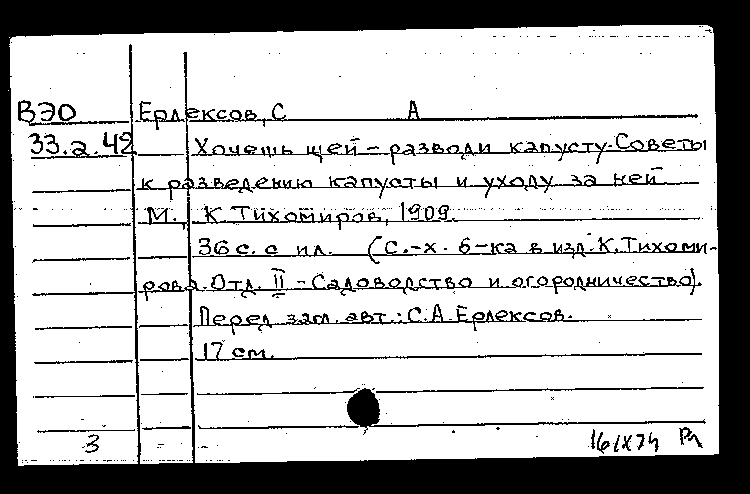 ВЭО Ерлексов, С А
33.2.42 Хочешь щей – разводи капусту. Советы
к разведению капусты и уходу за ней
М., К. Тихомиров, 1909.
36 с. с ил. (С.-х. б-ка в изд. К. Тихоми-
рова. Отд. II - Садоводство и огородничество).
Перед загл. авт.: С.А. Ерлексов.
17 см.
3 16/IX74